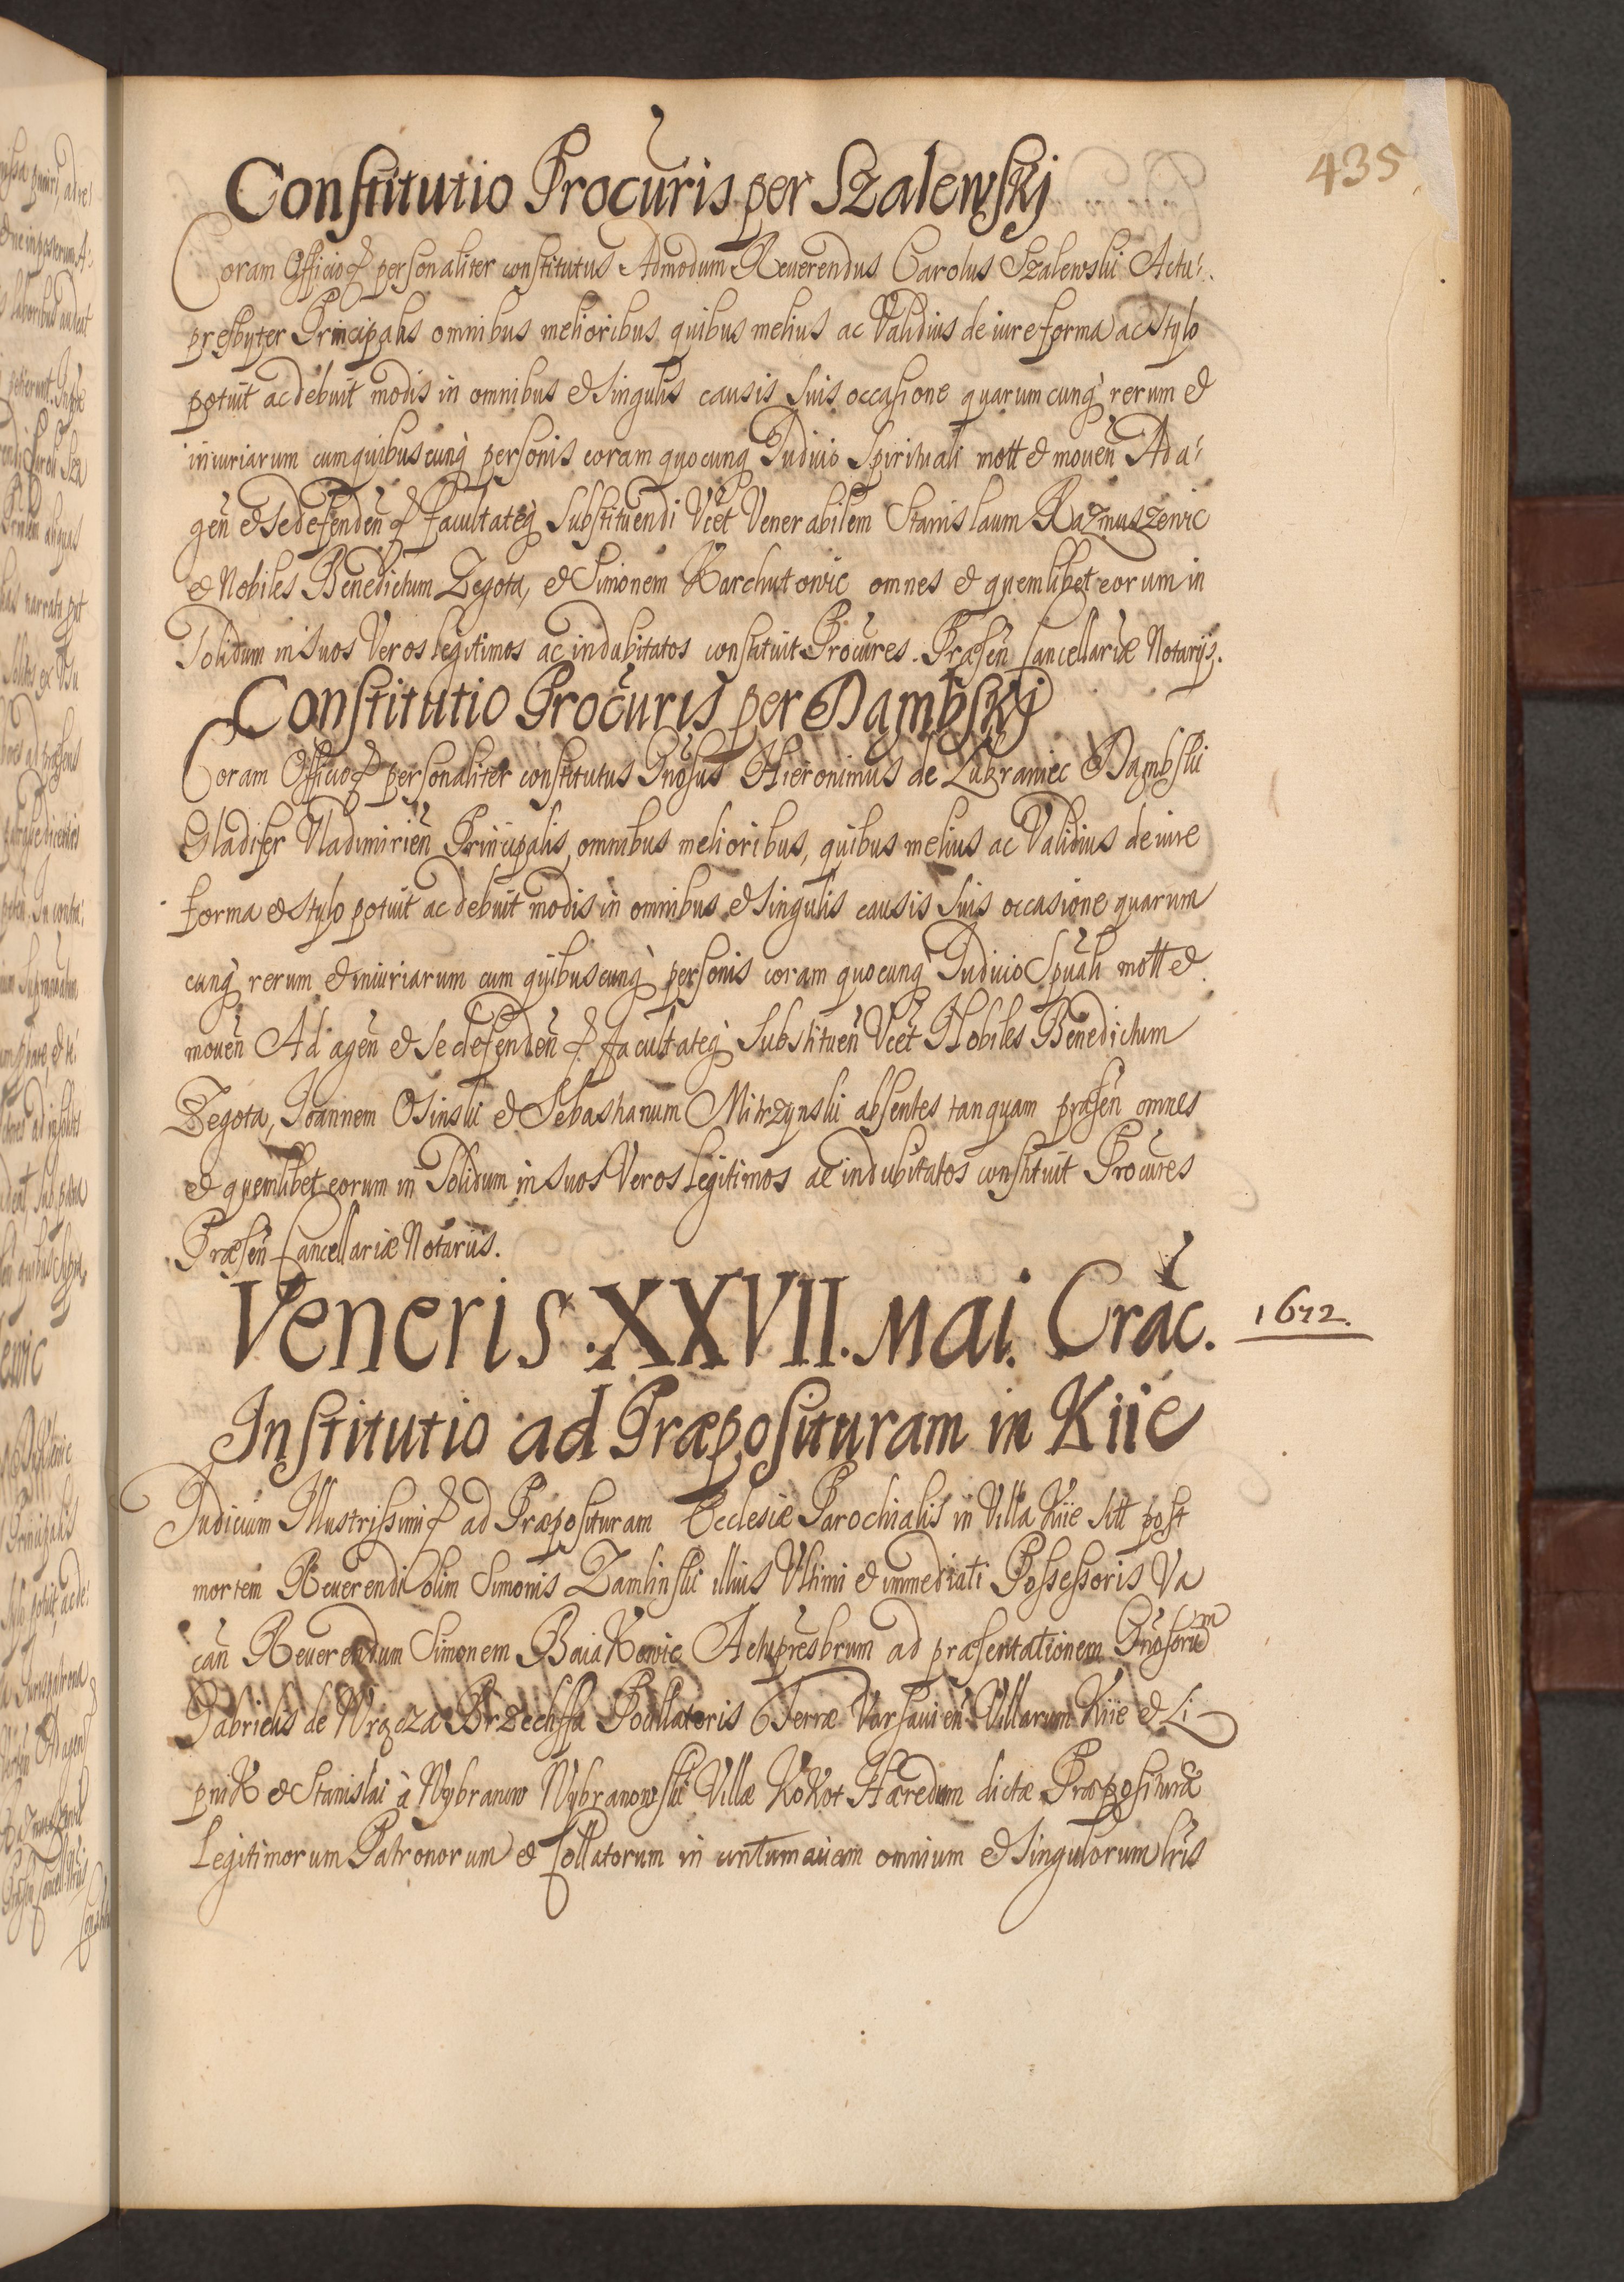 435
Constitutio Procuris per Szalewskj
Coram Officio & personaliter constitutus Admodum Reuerendus Carolus Szalewski Actu:
presbyter Principalis omnibus melioribus quibus melius ac Validius de iure forma ac Stylo
potuit ac debuit modis in omnibus et Singulis causis suis occasione quarumcunq rerum et
iniuriarum cum quibuscunq personis coram quocunq Iudicio Spirituali mott et mouen Ad a:
gen et se defenden & facultateq Substituendi Vcet Venerabilem Stanislaum Razmuszewic
et Nobiles Benedictum Zegota, et Simonem Karchutowic omnes et quemlibet eorum in
Solidum in Suos Veros legitimos ac indubitatos constituit Procures. Præsen Cancellariæ Notarijs.
Constitutio Procuris per Dambskj
Coram Officio & personaliter constitutus Gnosus Hieronimus de Lubraniec Dambski
Gladifer Vladimirien Principalis, omnibus melioribus, quibus melius ac Validius de iure
forma et Stylo potuit ac debuit modis in omnibus et Singulis causis Suis occasione quarum
cunq rerum et iniuriarum cum quibuscunq personis coram quocunq Iudicio Spuali mott et
mouen Ad agen et se defenden & facultateq Substituen Vcet Nobiles Benedictum
Zegota, Ioannem Osinski et Sebastianum Mitrzynski absentes tanquam præsen omnes
et quemlibet eorum in Solidum in Suos Veros Legitimos ac indubitatos constituit Procures
Præsen Cancellariæ Notariis.
Veneris XXVII. Mai. Crac. 1672.
Institutio ad Præposituram in Kiie
Iudicium Illustrissimi & ad Præposituram Ecclesiæ Parochialis in Villa Kiie sitt post
mortem Reuerendi olim Simonis Zamlinski illius Vltimi et immediati Possessoris Va
can Reuerendum Simonem Baiakowic Actupresbrum ad præsentationem Gnosorum
Gabrielis de Wrącza Brzechffa Pocillatoris Terræ Varsauien Villarum Kiie et Li
pnik et Stanislai à Wybranow Wybranowski Villæ Kokot Hæredum dictæ Præposituræ
Legitimorum Patronorum et Collatorum in contumaciam omnium et Singulorum lris